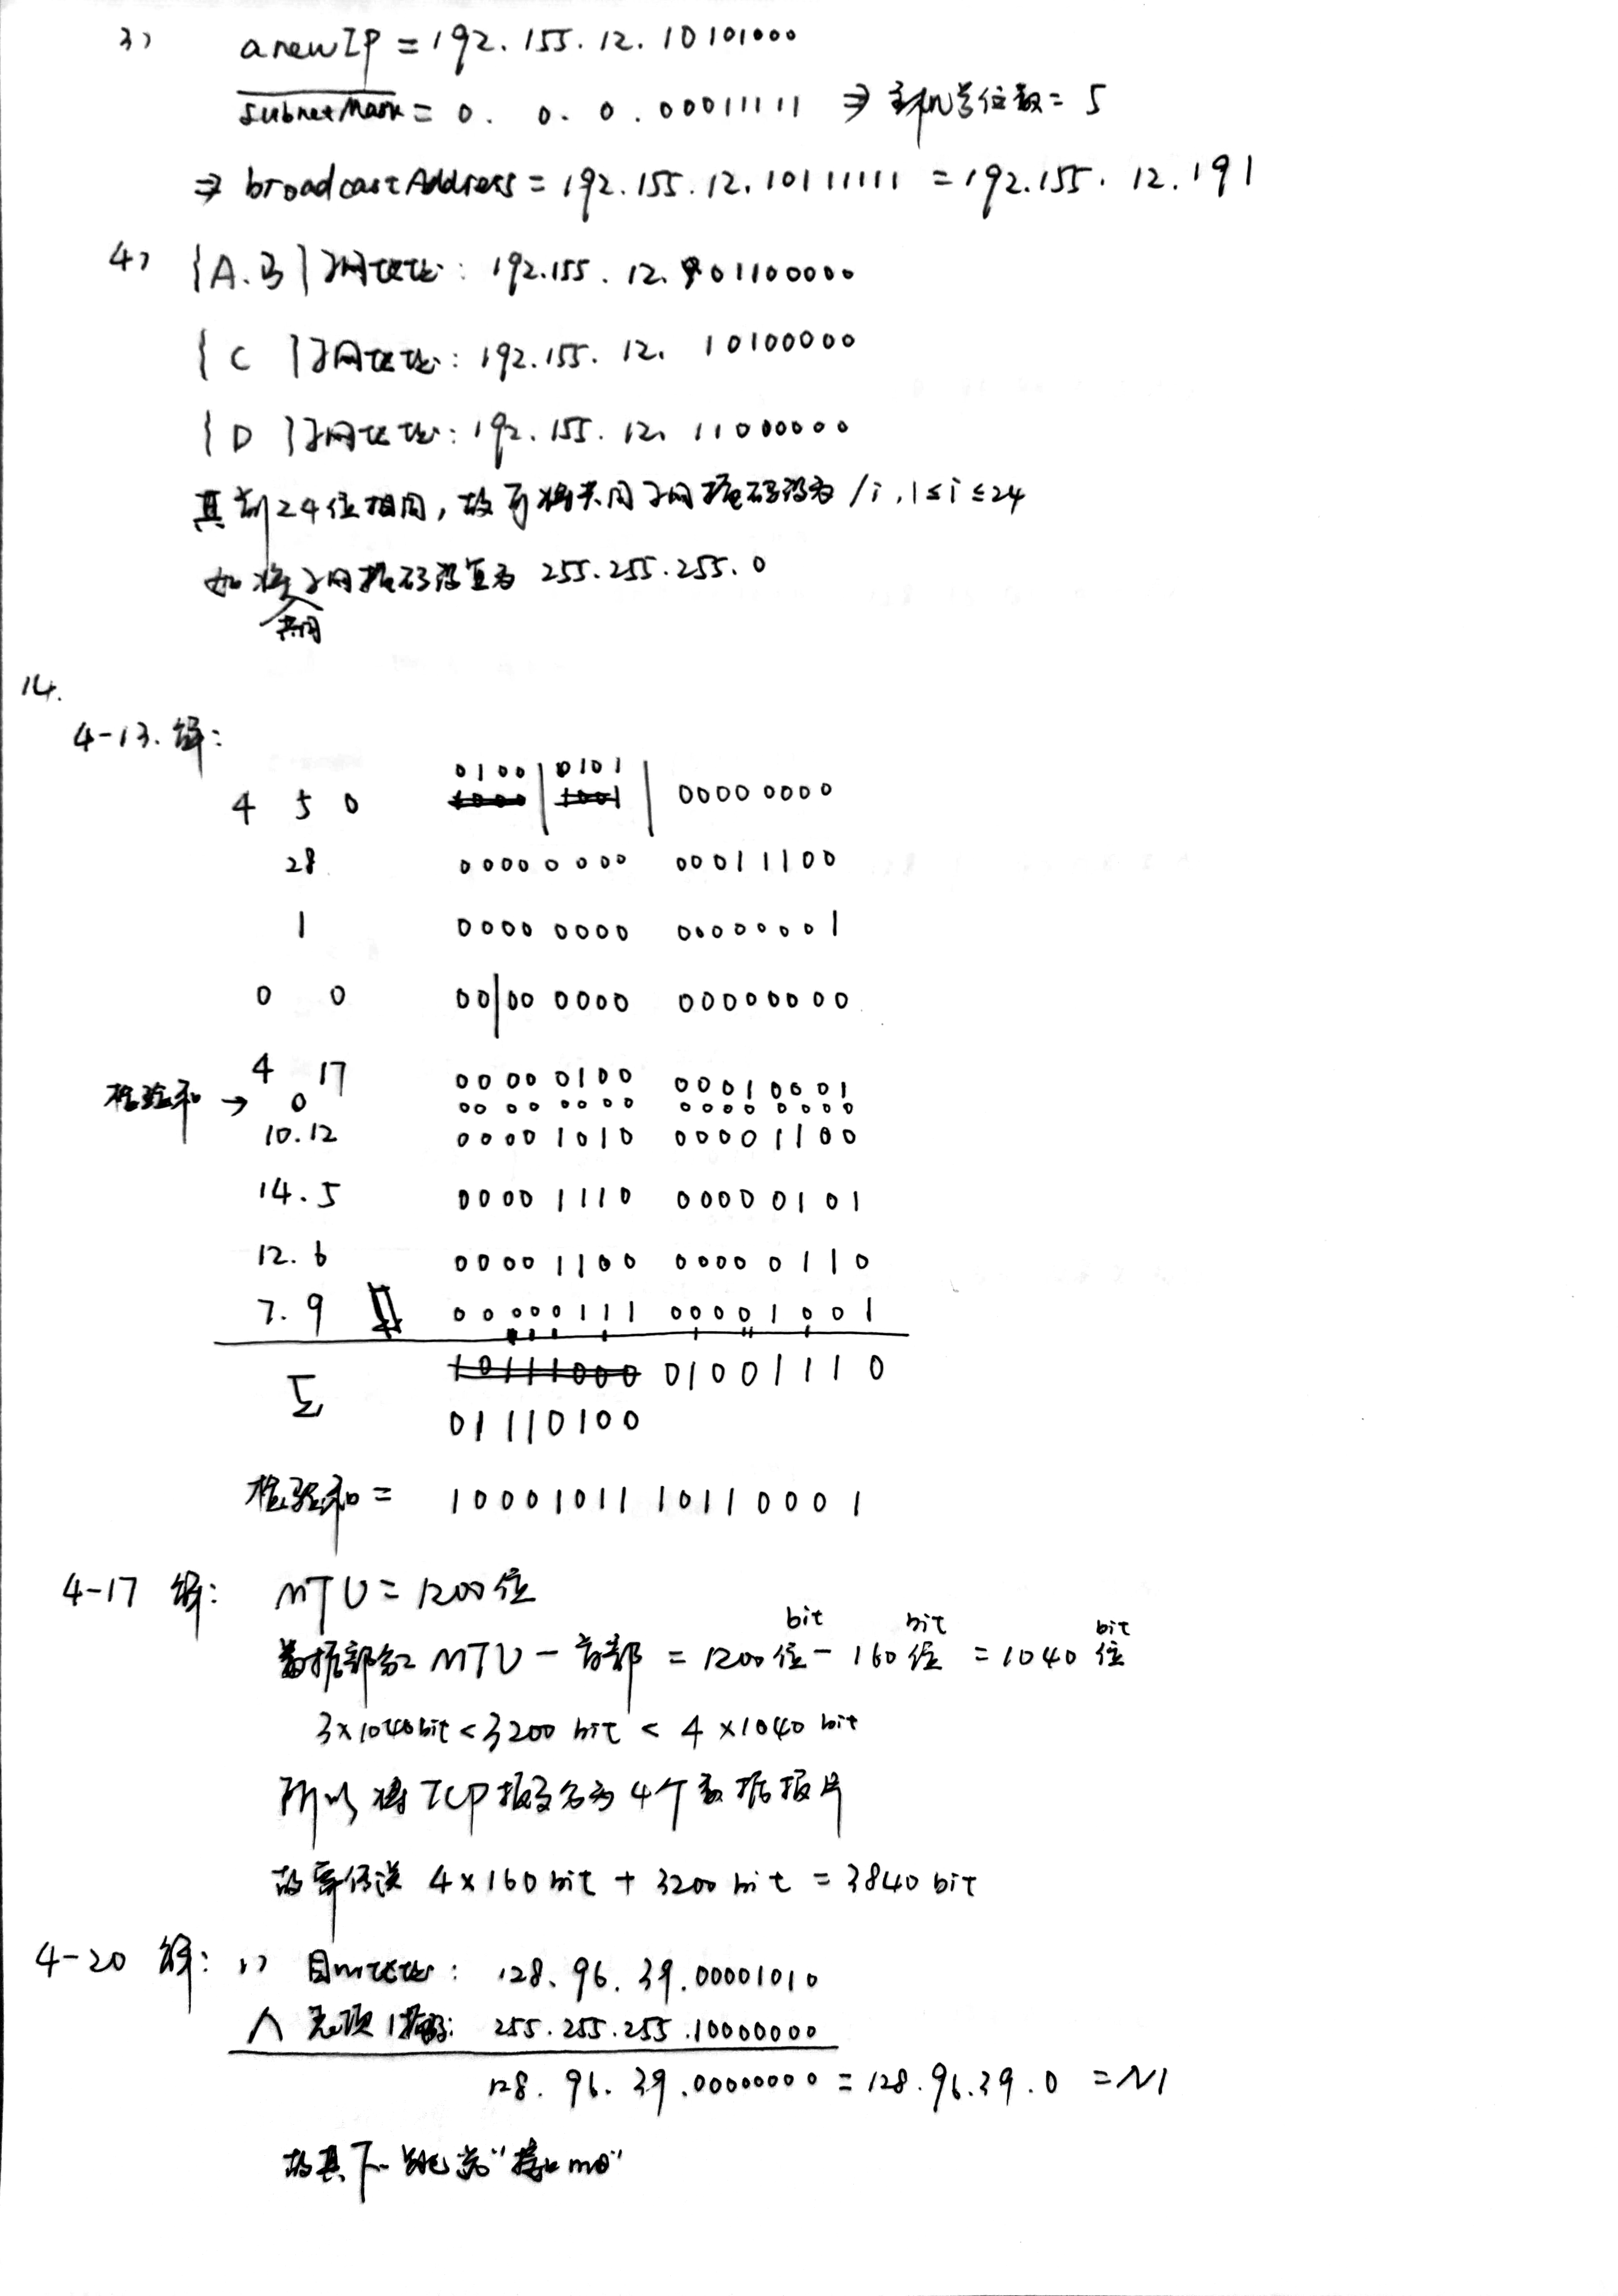 3) anewIP = 192.155.12.10101000
subnetMask = 0. 0. 0. 00011111 ⇒ 主机号位数 = 5
⇒ broadcastAddress = 192.155.12.10111111 = 192.155.12.191
4) {A.B}子网地址: 192.155.12.01100000
{C}子网地址: 192.155.12.10100000
{D}子网地址: 192.155.12.11000000
其前24位相同,故可将共同子网掩码设为/i,1≤i≤24
如将共同子网掩码设置为 255.255.255.0
14.
4-13. 解:
4 5 0 0100 | 0101 | 00000000
28 00000000 00011100
1 00000000 00000001
0 0 00|000000 00000000
4 17 00000100 00010001
检验和 → 0 00000000 00000000
10.12 00001010 00001100
14.5 00001110 00000101
12.6 00001100 00000110
7.9 00000111 00001001
Σ 01001110
01110100
检验和 = 10001011 10110001
4-17 解: MTU = 1200位
数据部分 = MTU - 首部 = 1200位 bit - 160位 bit = 1040位 bit
3×1040bit < 3200 bit < 4×1040 bit
所以将TCP报文分为4个数据报片
故需传送 4×160 bit + 3200 bit = 3840 bit
4-20 解: 1) 目的地址: 128.96.39.00001010
∧ 表项1掩码: 255.255.255.10000000
128.96.39.00000000 = 128.96.39.0 = N1
故其下一跳为"接口m0"